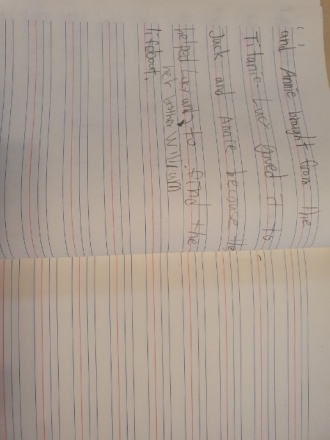 and Annie brought from the
Titanic. Lucy gived it to
Jack and Annie because the
helped Lucy and to find the
her brother William
lifeboat.